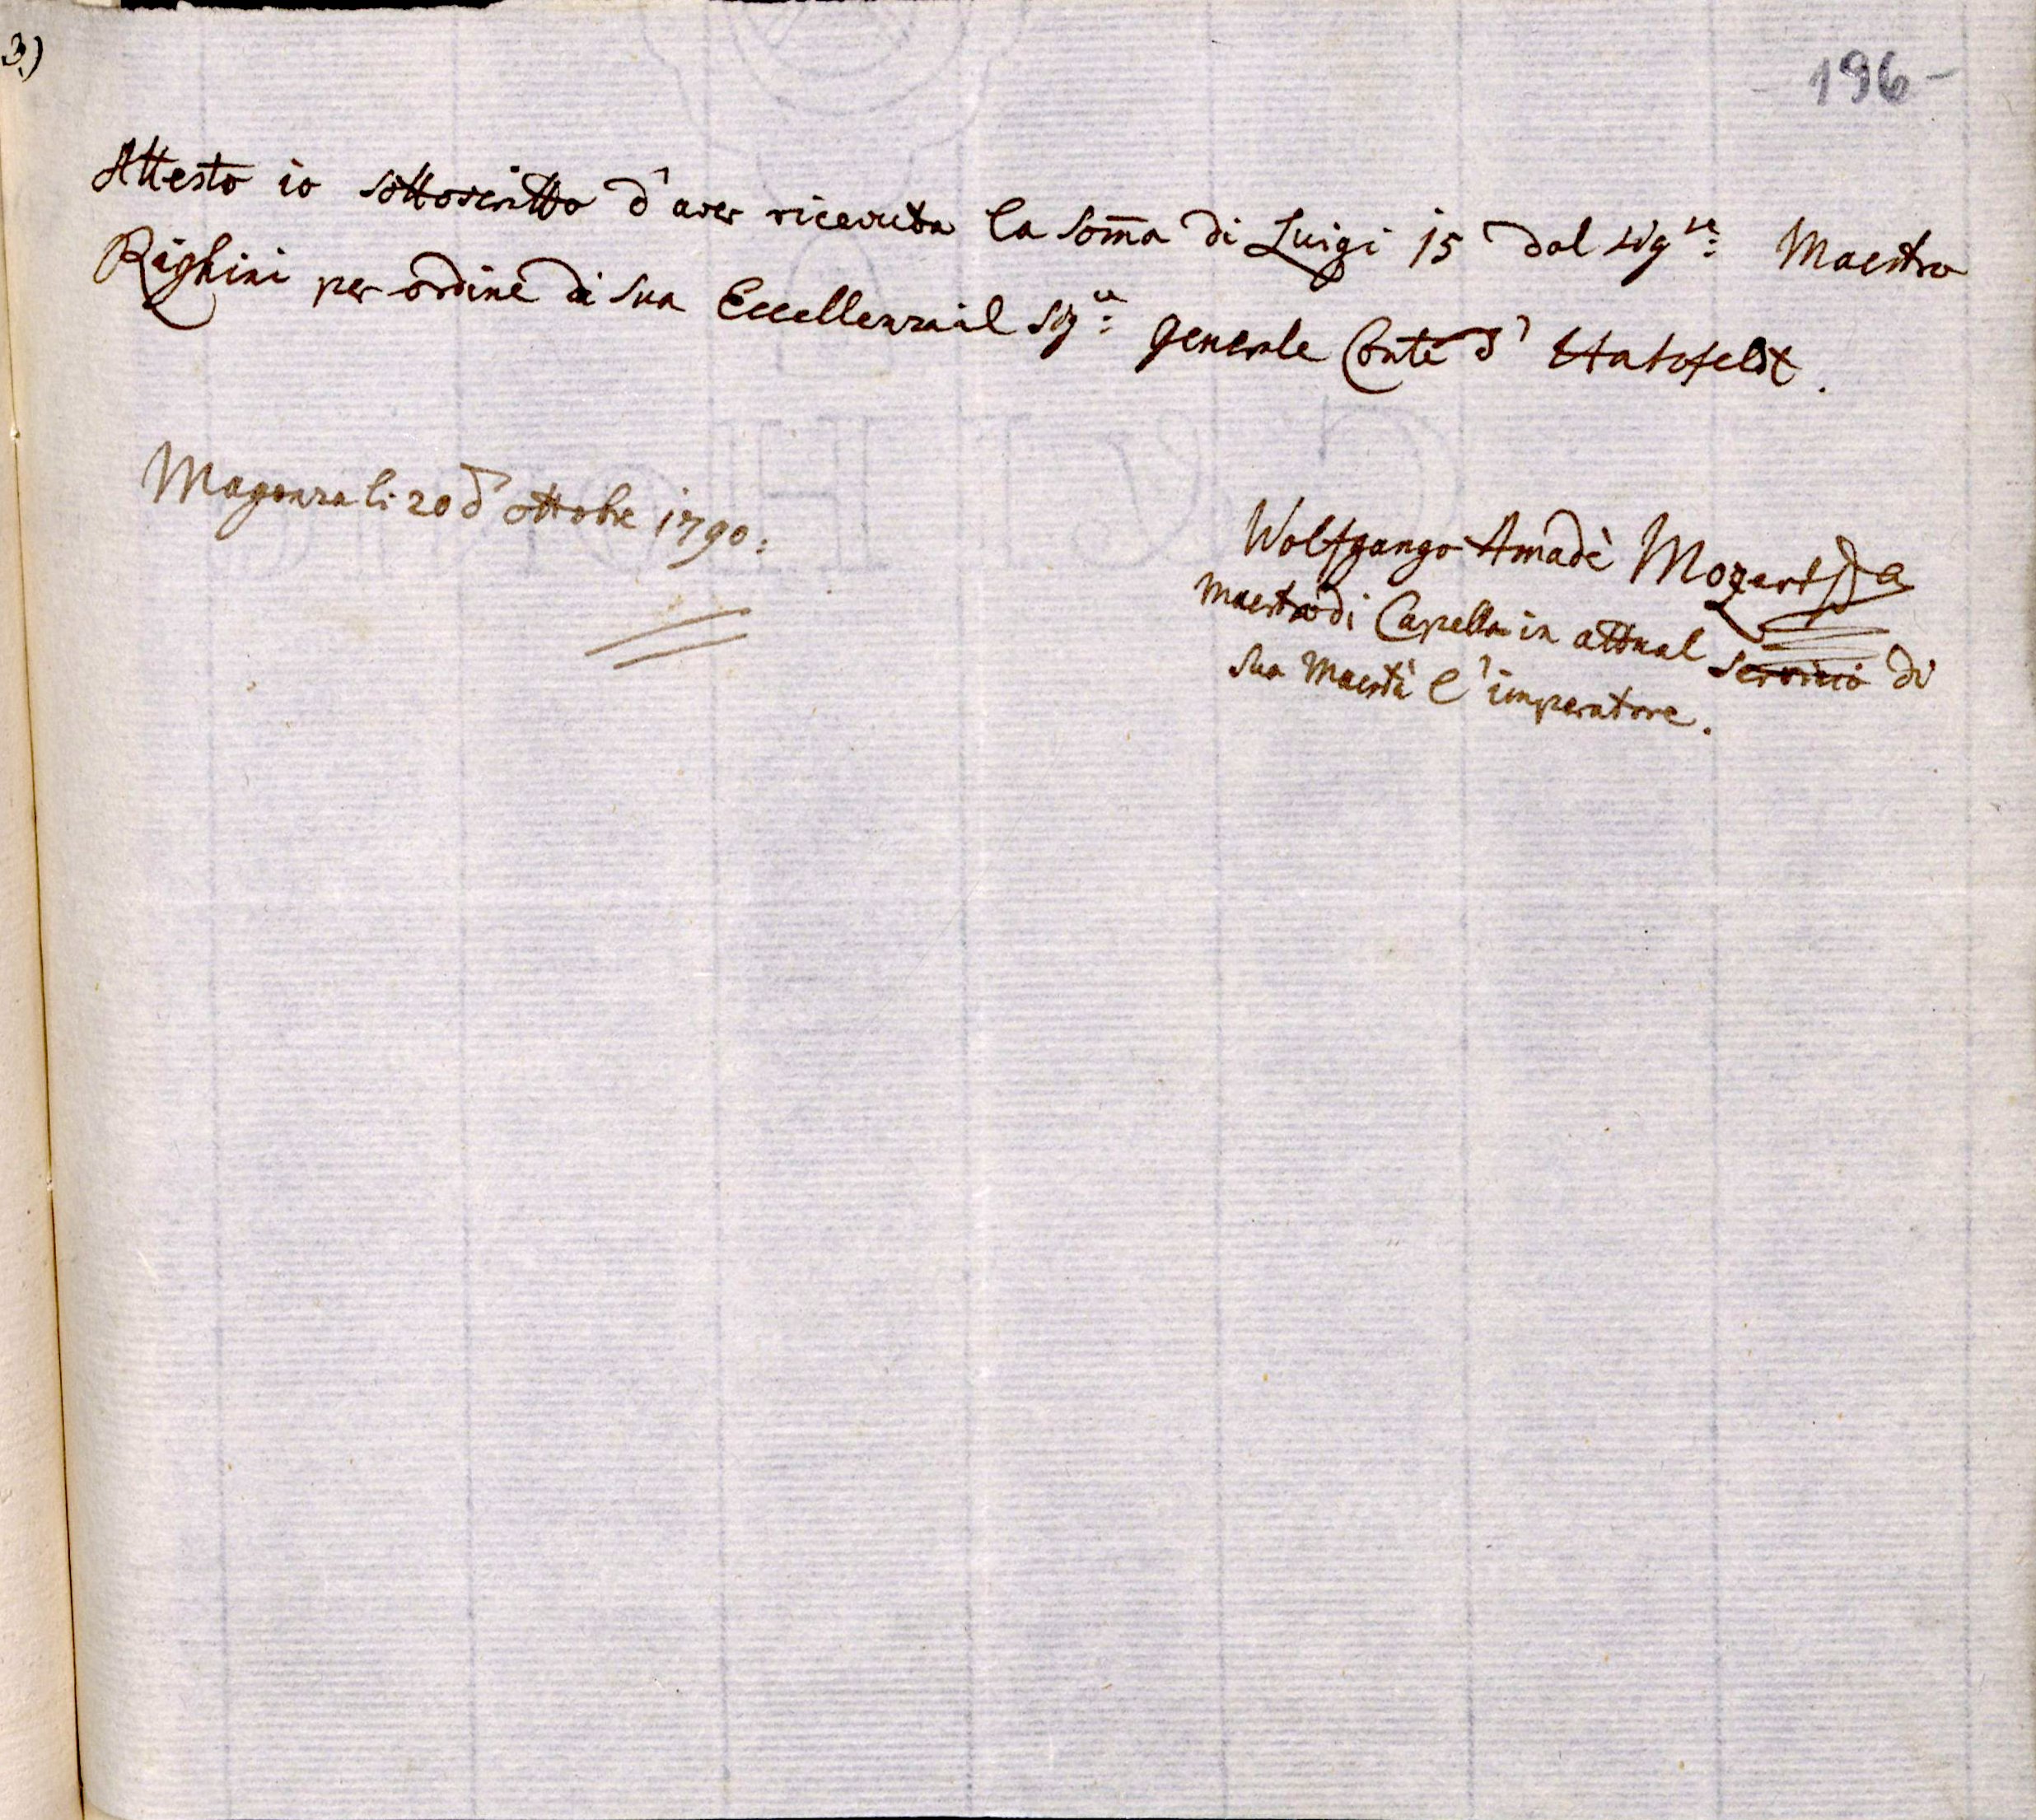 3.)
196
Attesto io sottoscritto d'aver ricevuta la som̄a di Luigi 15 dal Sigre: Maestro
Righini per ordine di sua Eccellenza il Sigre: generale Conte d'Hatzfeldt.
Magonza li 20 d'ottobre 1790:
Wolfgango Amadè Mozart
maestro di Capella in attual servizio di
sua Maestà l'imperatore.